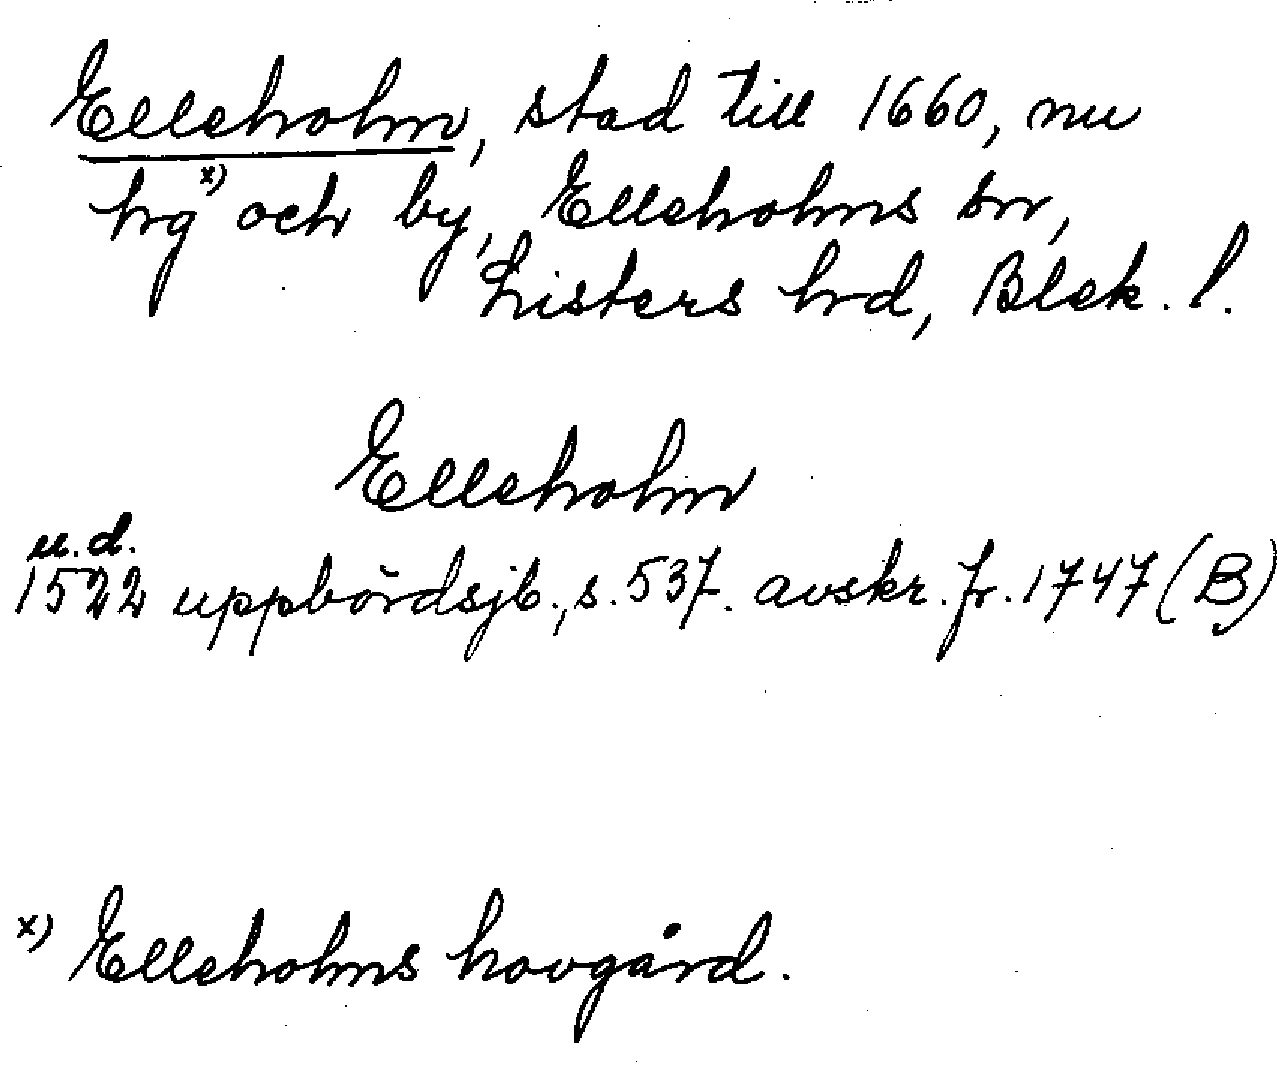 Elleholm, stad till 1660, nu
hg x) och by, Elleholms sn,
Listers hd, Blek. l.
Elleholm
u.d.
1522 uppbördsjb., s. 537. avskr. fr. 1747 (B)
x) Elleholms hovgård.